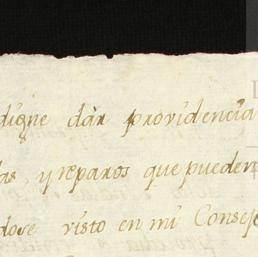 digne dàr providencia
las, y reparos que pueden
dose visto en mi Consejo